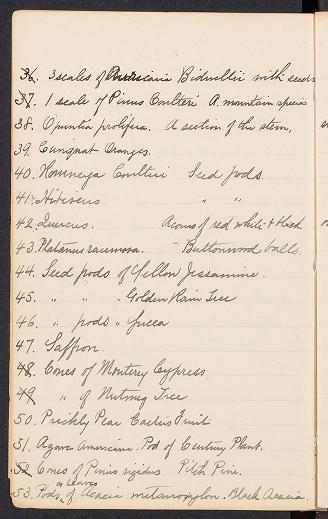 36. 3 scales of Araucaria Bidwillii with seeds
37. 1 scale of Pinus Coulteri A. mountain species
38. Opuntia prolifera. A section of the stem,
39. Cumquat Oranges.
40. Romneya Coulteri Seed pods.
41. Hibiscus " "
42. Quercus. Acorns of red white & black
43. Platanus racemosa. - Buttonwood balls.
44. Seed pods of Yellow Jessamine.
45. " " " Golden Rain Tree
46. " pods " Yucca
47. Saffron.
48. Cones of Monterey Cypress.
49 " of Nutmeg Tree
50. Prickly Pear Cactus Fruit
51. Agave Americana. Pod of Century Plant.
52. Cones of Pinis rigidus Pitch Pine.
53. Pods, & leaves of Acacia melanoxylon. Black Acacia